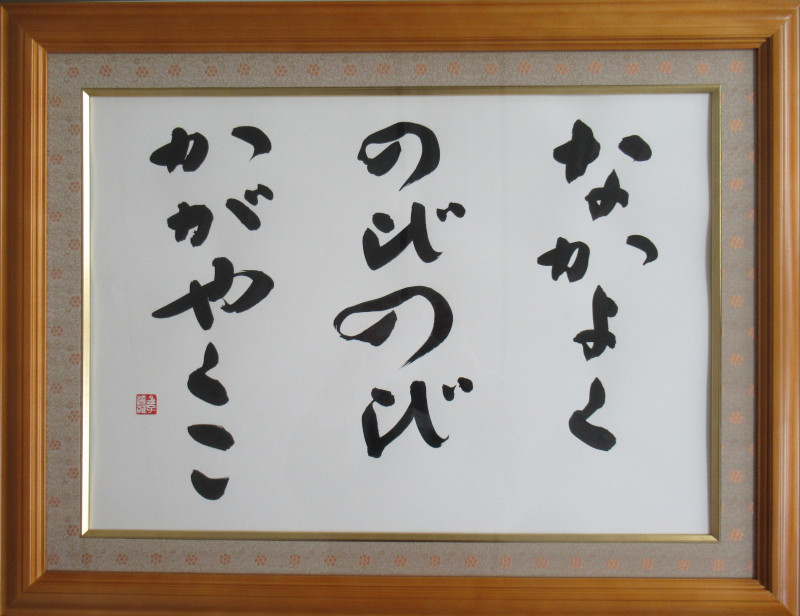 なかよく
のびのび
かがやくこ